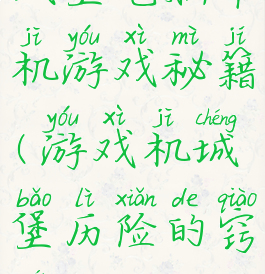 jī yóu xì mì jí
机游戏秘籍
yóu xì jī chéng
(游戏机城
bǎo lì xiǎn de qiào
堡历险的窍